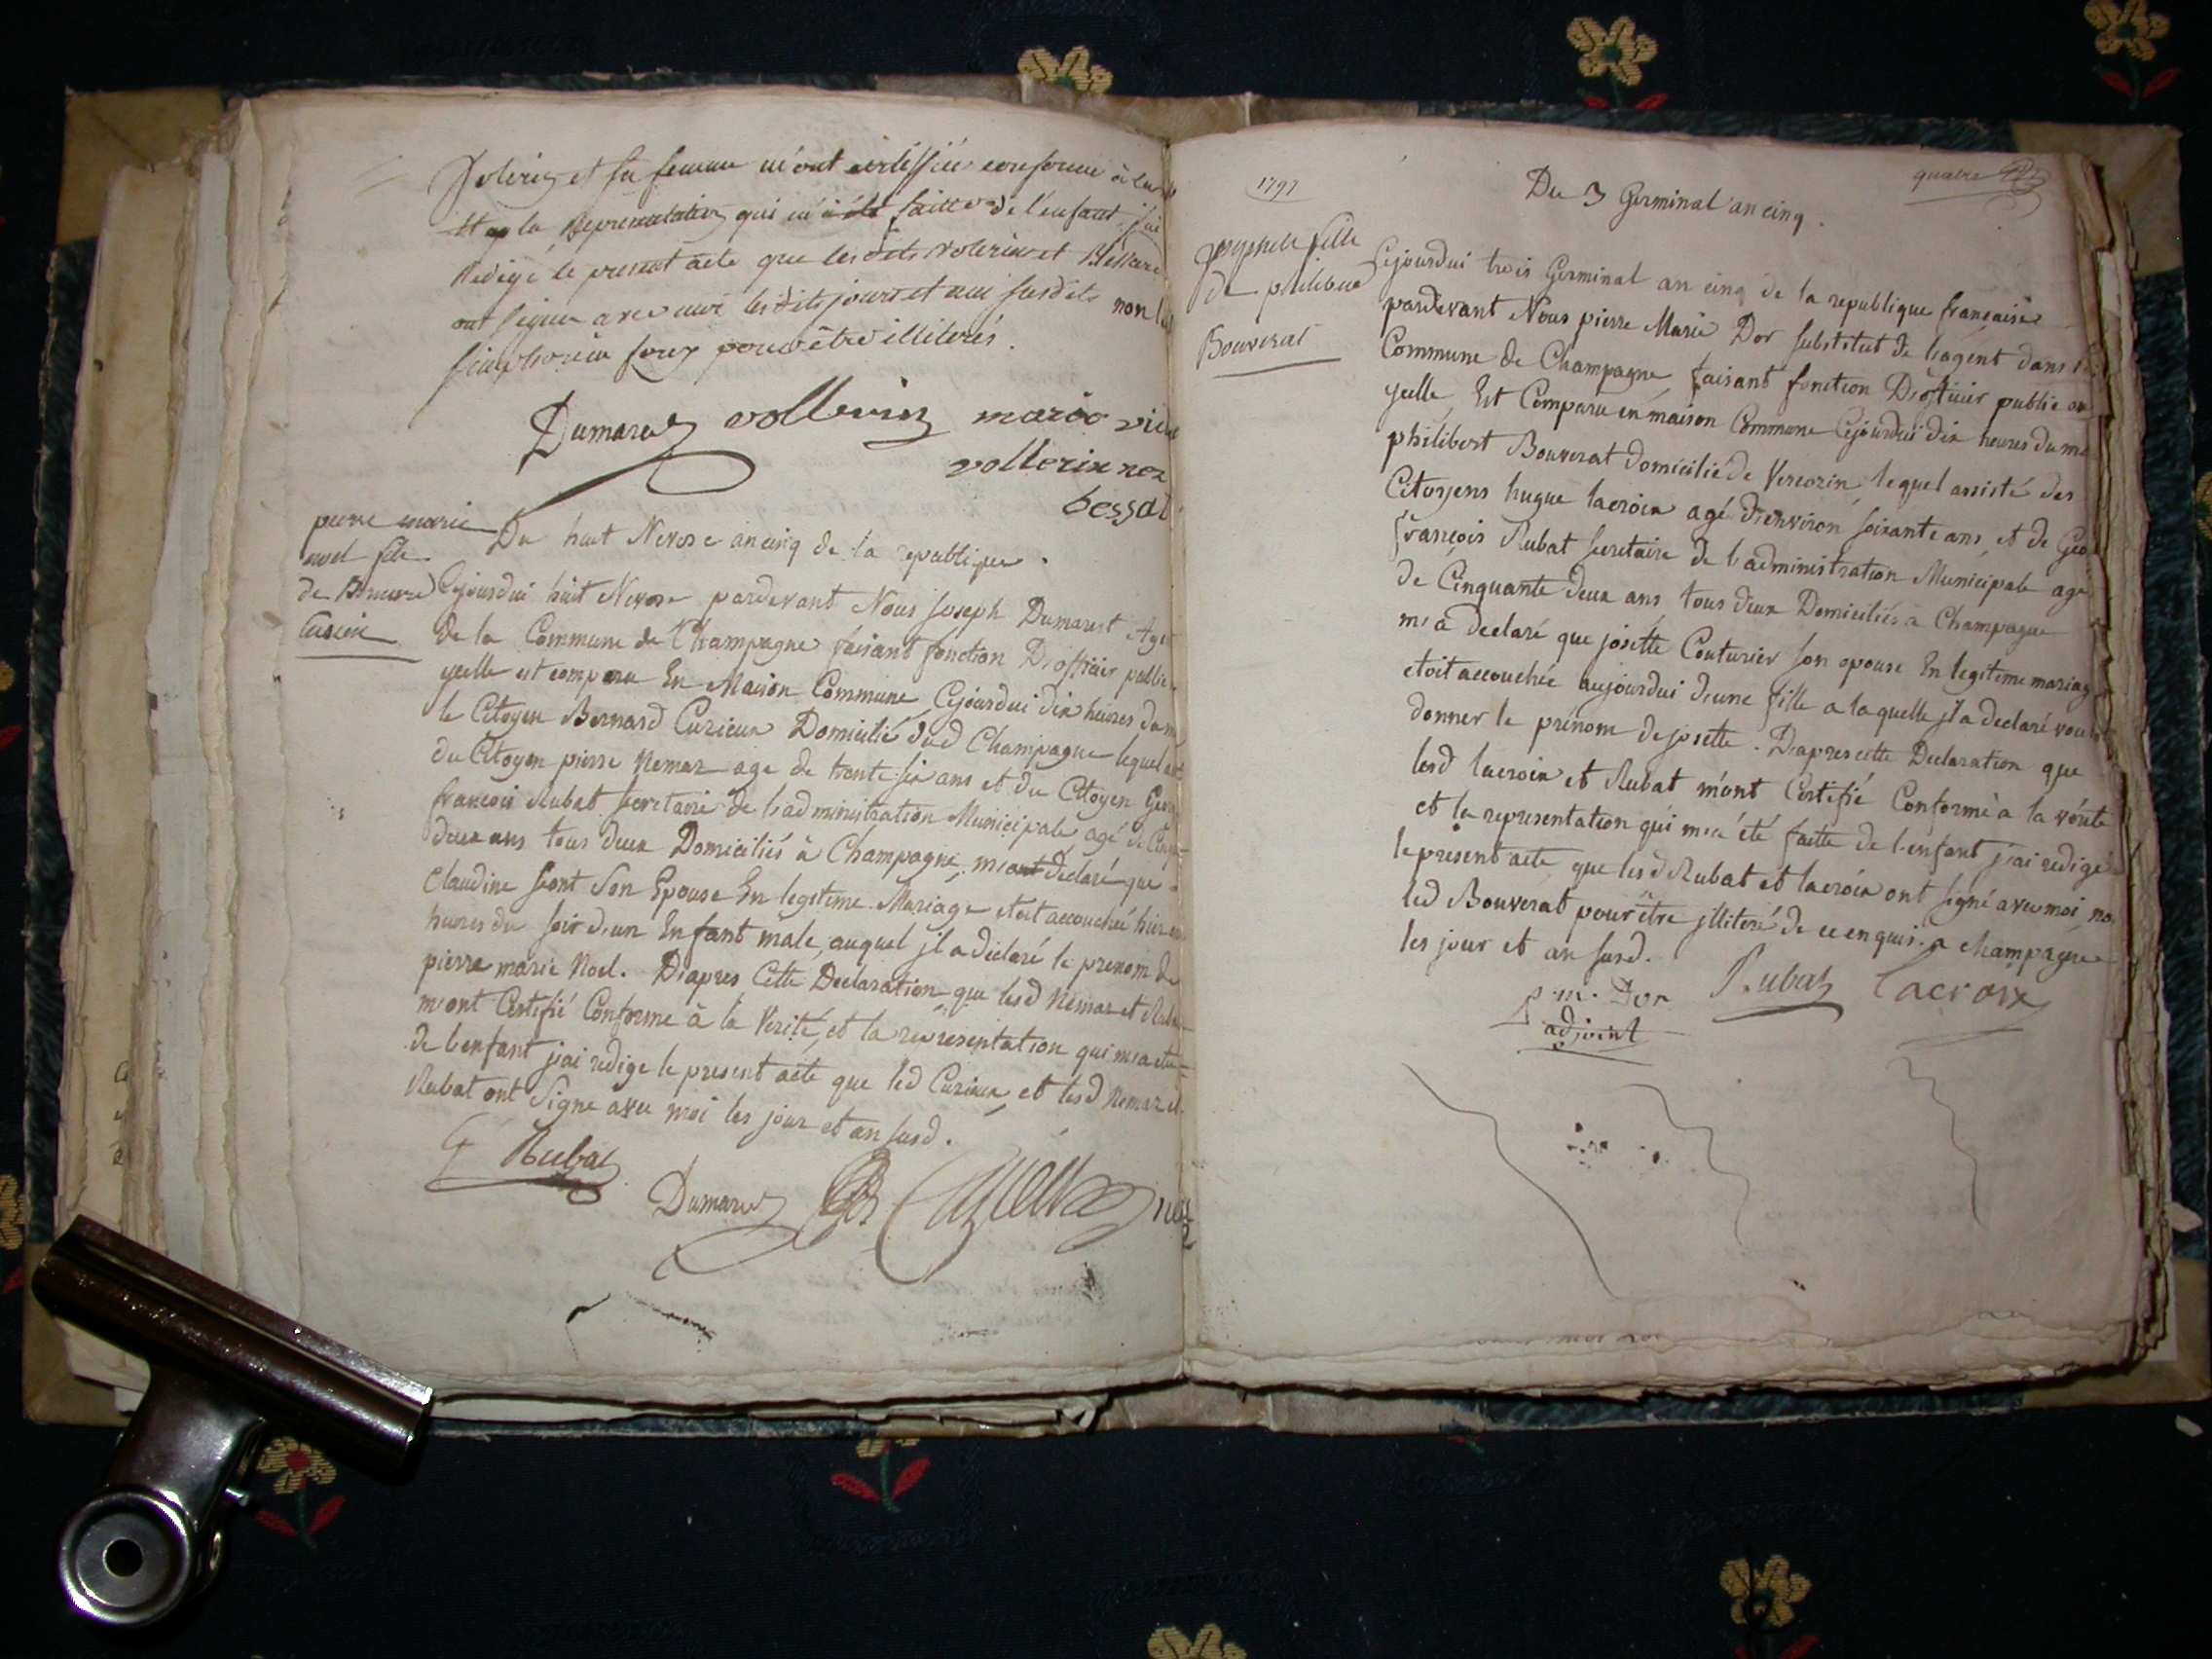 et sa femme m'ont certiffiée conforme à la
la Representation qui m'a été faitte de l'enfant j'ai
Redigé le present acte que les dits volerin et
ont signer avec moi les dits jours et an susdits non
pour être illiterés.
Dumarest vollerin marie
vollerin nez
bessat
pierre marie
noel fils
de Bernard
Cusieu
Du huit Nivose an cinq de la republique.
Cejourdui huit Nivose pardevant Nous joseph Dumarest Agent
de la Commune de Champagne faisant fonction D'officier public
ycelle est comparu En Maison Commune Cejourdui dix heures du
le Citoyen Bernard Curieux Domicilié dud Champagne lequel
du Citoyen pierre Nemoz age de trente six ans et du Citoyen
françois Rubat secretaire de l'administration Municipale agé de
deux ans tous deux Domiciliés à Champagne, m'ont declaré que
Claudine Son Epouse En legitime Mariage etoit accouchée hier
heures du soir d'un Enfant mâle, auquel jl a declaré le prenom de
pierre marie Noel. D'apres Cette Declaration que lesd Nemoz et
m'ont Certifié Conforme à la Verité, et la representation qui m'a eté
de l'enfant j'ai redige le present acte que led Curieux et lesd Nemoz et
Rubat ont Signe avec moi les jour et an susd.
Rubat
Dumarest
1797
quatre
Du 3 Germinal an cinq.
josephte fille
de philibert
Bouverat
Cejourdui trois Germinal an cinq de la republique française
pardevant Nous pierre Marie Dor substitut de l'agent dans la
Commune de Champagne, faisant fonction D'officier public en
ycelle, Est Comparu en maison Commune Cejourdui dix heures du
philibert Bouverat domicilié de Vercorin lequel assisté des
Citoyens hugue lacroix agé d'environ soixante ans, et de
françois Rubat secretaire de l'administration Municipale agé
de Cinquante deux ans tous deux Domiciliés à Champagne
m'a declaré que josette Couturier son epouse En legitime mariage
etoit accouchée aujourdui d'une fille a laquelle jl a declaré vouloir
donner le prénom de josette. D'apres cette Declaration que
lesd lacroix et Rubat m'ont Certifié Conforme à la vérité
et la representation qui m'a été faitte de l'enfant j'ai redigé
le present acte que lesd Rubat et lacroix ont signé avec moi, non
led Bouverat pour être jlliteré de ce enquis. a champagne
les jour et an susd.
p. m. Dor Rubat lacroix
adjoint